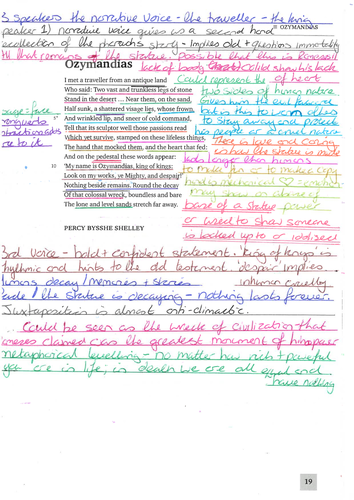 3 speakers the narrative voice - the traveller - the king
OZYMANDIAS
peaker 1) narrative voice gives us a second hand
ecollection of the pharaohs story - implies old + questions immortality
ll that remains of the statue. Possible that this is Ramesis II
Ozymandias
lack of body could show his lack
of heart
I met a traveller from an antique land
Could represent the
Who said: Two vast and trunkless legs of stone
two sides of human nature
Stand in the desert … Near them, on the sand,
Half sunk, a shattered visage lies, whose frown,
visage = face
And wrinkled lip, and sneer of cold command,
Tell that its sculptor well those passions read
to stay away and protect
Which yet survive, stamped on these lifeless things,
his people or a cruel nature
The hand that mocked them, and the heart that fed:
There is love and caring
And on the pedestal these words appear:
longer than humans
10
'My name is Ozymandias, king of kings:
to make fun or to make a copy
Look on my works, ye Mighty, and despair!'
Nothing beside remains. Round the decay
base of a statue
Of that colossal wreck, boundless and bare
or used to show someone
The lone and level sands stretch far away.
is looked up to or idolised
PERCY BYSSHE SHELLEY
3rd voice - bold + confident statement. 'King of Kings' is
rhythmic and hints to the old testement 'despair' implies
inhuman cruelty
humans decay / memories + stories
fade / the statue is decaying - nothing lasts forever.
Juxtaposition is almost anti-climactic.
Could be seen as the wreck of civilization that
rameses claimed was the greatest monument of his power
metaphorical levelling - no matter how rich + powerful
you are in life, in death we are all equal and
have nothing
19